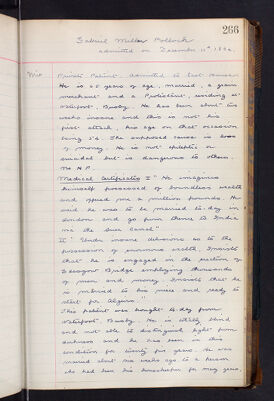 266
Gabriel Miller Pollock
admitted on December 11th
Private Patient. Admitted to East House.
He is 65 years of age, married, a grain
merchant and a Protestant, residing at
Busby. He has been about two
weeks insane and this is not his
first attack, his age on that occasion
being 54. The supposed cause is loss
of money. He is not epileptic or
suicidal but is dangerous to others.
Medical Certificates I "He imagines
himself possessed of boundless wealth
and offered me a million pounds. He
said he was to be married to-day in
London and go from thence to India
via the Suez Canal"
II "Under insane delusions as to the
possession of enormous wealth, Insists
that he is engaged in the erection of
Glasgow Bridge employing thousands
of men and money. Insists that he
is married to his niece and ready to
start for Algiers."
This patient was brought to-day from
Busby. He is totally blind
and not able to distinguish light from
darkness and he has been in this
condition for twenty five years. He was
married about six weeks ago to a person
who had been his housekeeper for many years,